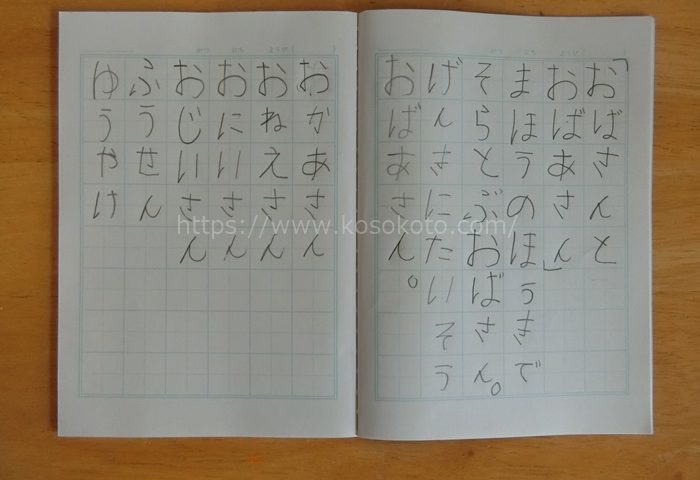 がつ にち ようび( )
「おばさんと
おばあさん」
まほうのほうきで
そらとぶおばさん。
げんきにたいそう
おばあさん。
がつ にち ようび( )
おかあさん
おねえさん
おにいさん
おじいさん
ふうせん
ゆうやけ
https://www.kosokoto.com/